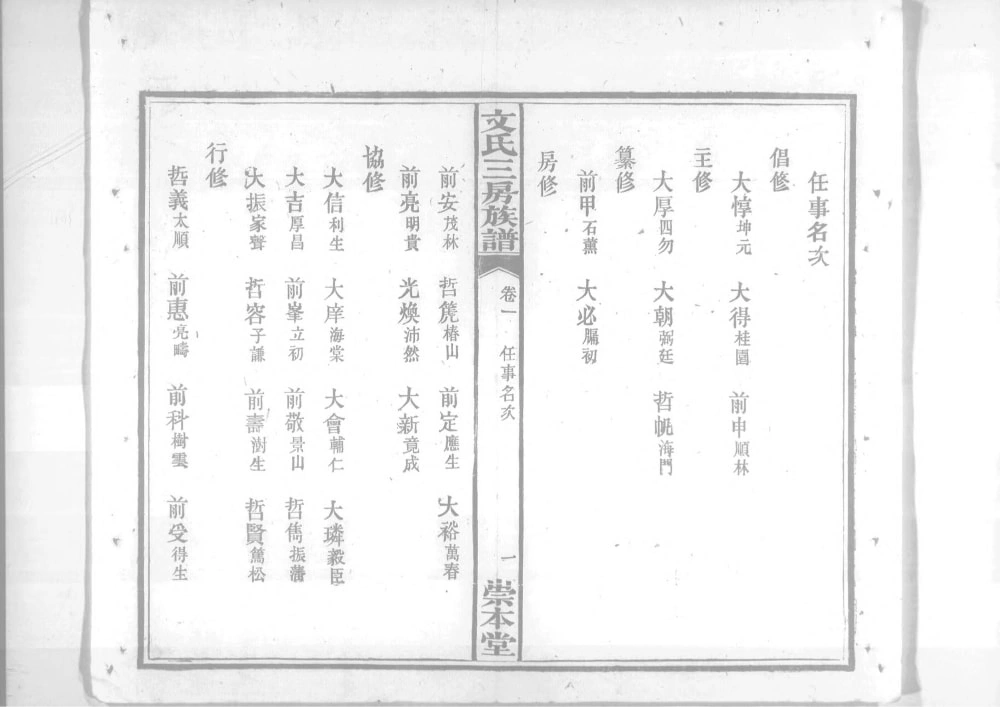 任事名次
倡修
大惇坤元 大得桂園 前申順林
主修
大厚四勿 大朝弼廷 哲帆海門
纂修
前甲石薰 大必鳳初
房修
文氏三房族譜 卷一 任事名次 一 崇本堂
前安茂林 哲箎椿山 前定應生 大裕萬春
前亮明貴 光煥沛然 大新竟成
協修
大信利生 大庠海棠 大會輔仁 大璘毅臣
大吉厚昌 前峯立初 前敬景山 哲雋振藩
大振家聲 哲容子謙 前壽澍生 哲賢篤松
行修
哲義太順 前惠亮疇 前科樹雲 前受得生